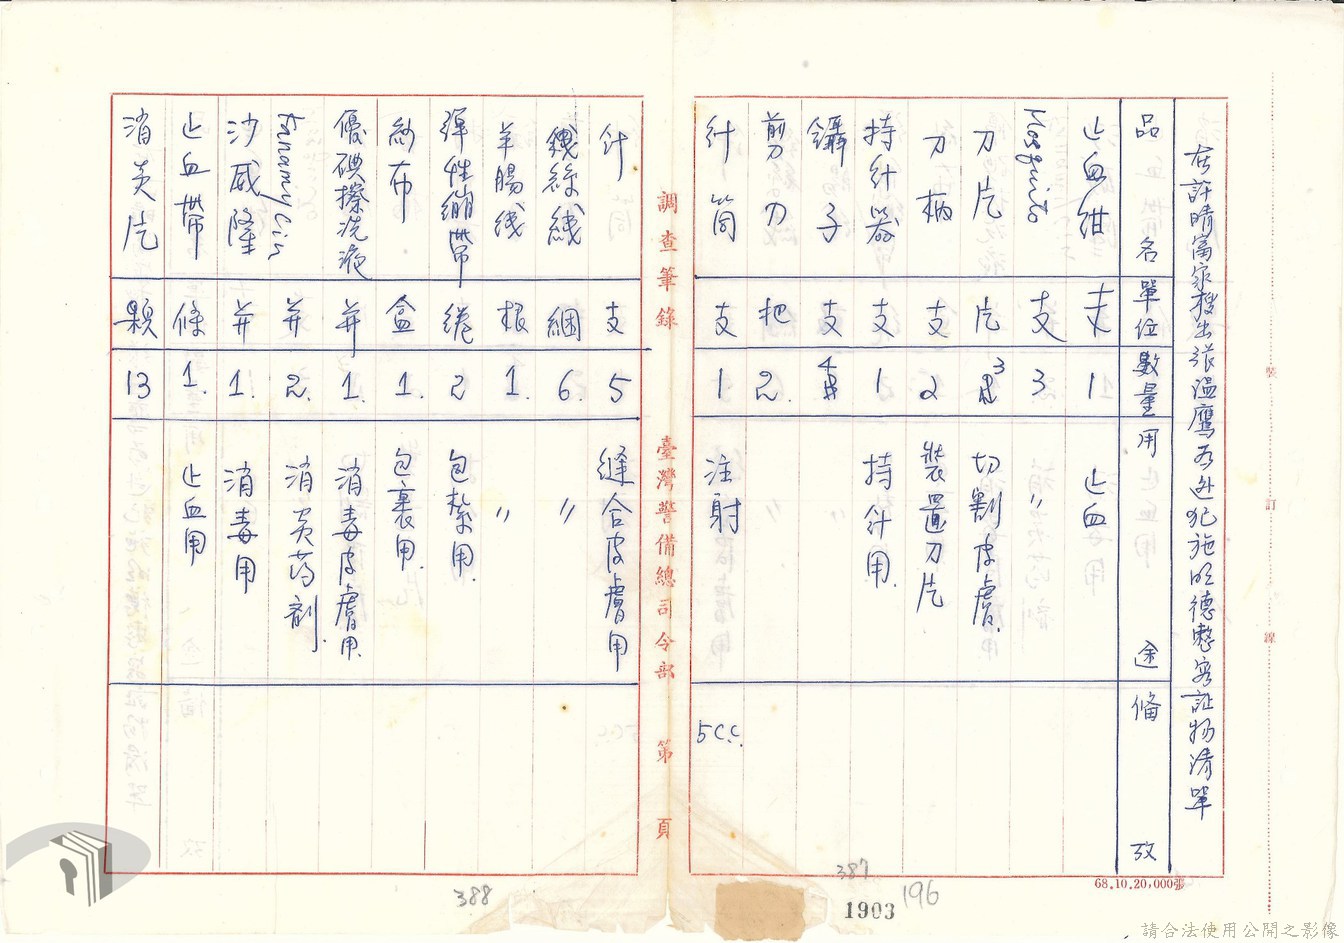 在許晴富家搜出張溫鷹為逃犯施明德整容証物清單
品名 單位 數量 用途 備攷
止血紺 支 1 止血
Mosquito 支 3 〃
刀片 片 3 切割皮膚.
刀柄 支 2 裝置刀片
持針器 支 1 持針用.
鑷子 支 4
剪刀 把 2.
針筒 支 1 注射 5c.c.
調查筆錄 臺灣警備總司令部 第 頁
針 支 5 縫合皮膚用
絲線 綑 6. 〃
羊腸线 根 1. 〃
彈性繃帶 捲 2 包紮用.
紗布 盒 1. 包裹用.
優碘擦洗液 并 1. 消毒皮膚用.
并 2. 消炎药剂.
沙威隆 并 1. 消毒用
止血帶 條 1. 止血用
消炎片 顆 13
裝
訂
線
68.10.20,000張
387
388
196
1903
請合法使用公開之影像